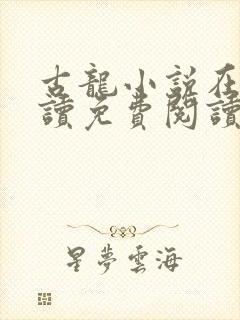 古龍小說在
讀免費閱讀
星夢雲海